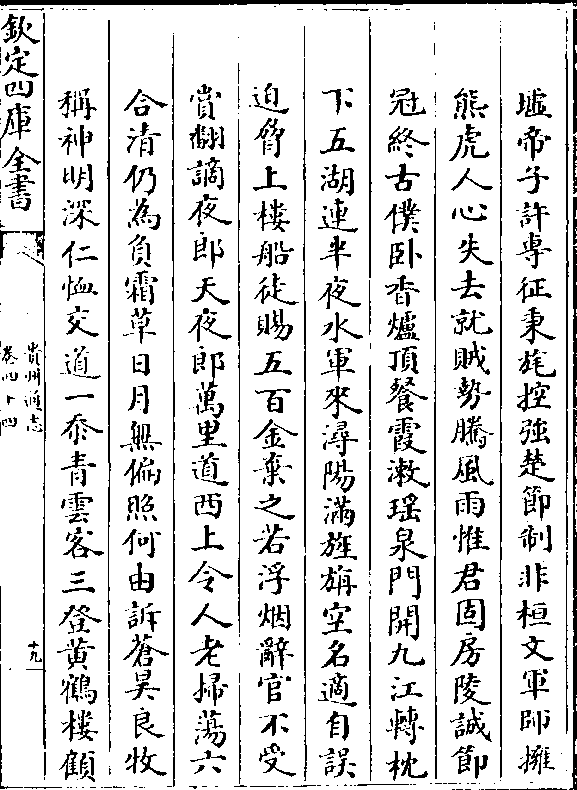 墟帝子許專征秉旄控強楚節制非桓文軍師擁
熊虎人心失去就賊勢騰風雨惟君固房陵誠節
冠終古僕卧香爐頂餐霞漱瑶泉門開九江轉枕
下五湖連半夜水軍來潯陽滿旌旃空名適自誤
迫脅上樓船徒賜五百金棄之若浮烟辭官不受
賞翻謫夜郎天夜郎萬里道西上令人老掃蕩六
合清仍為負霜草日月無偏照何由訴蒼昊良牧
稱神明深仁恤交道一忝青雲客三登黄鶴樓顧
欽定四庫全書
貴州通志
卷四十四
十九